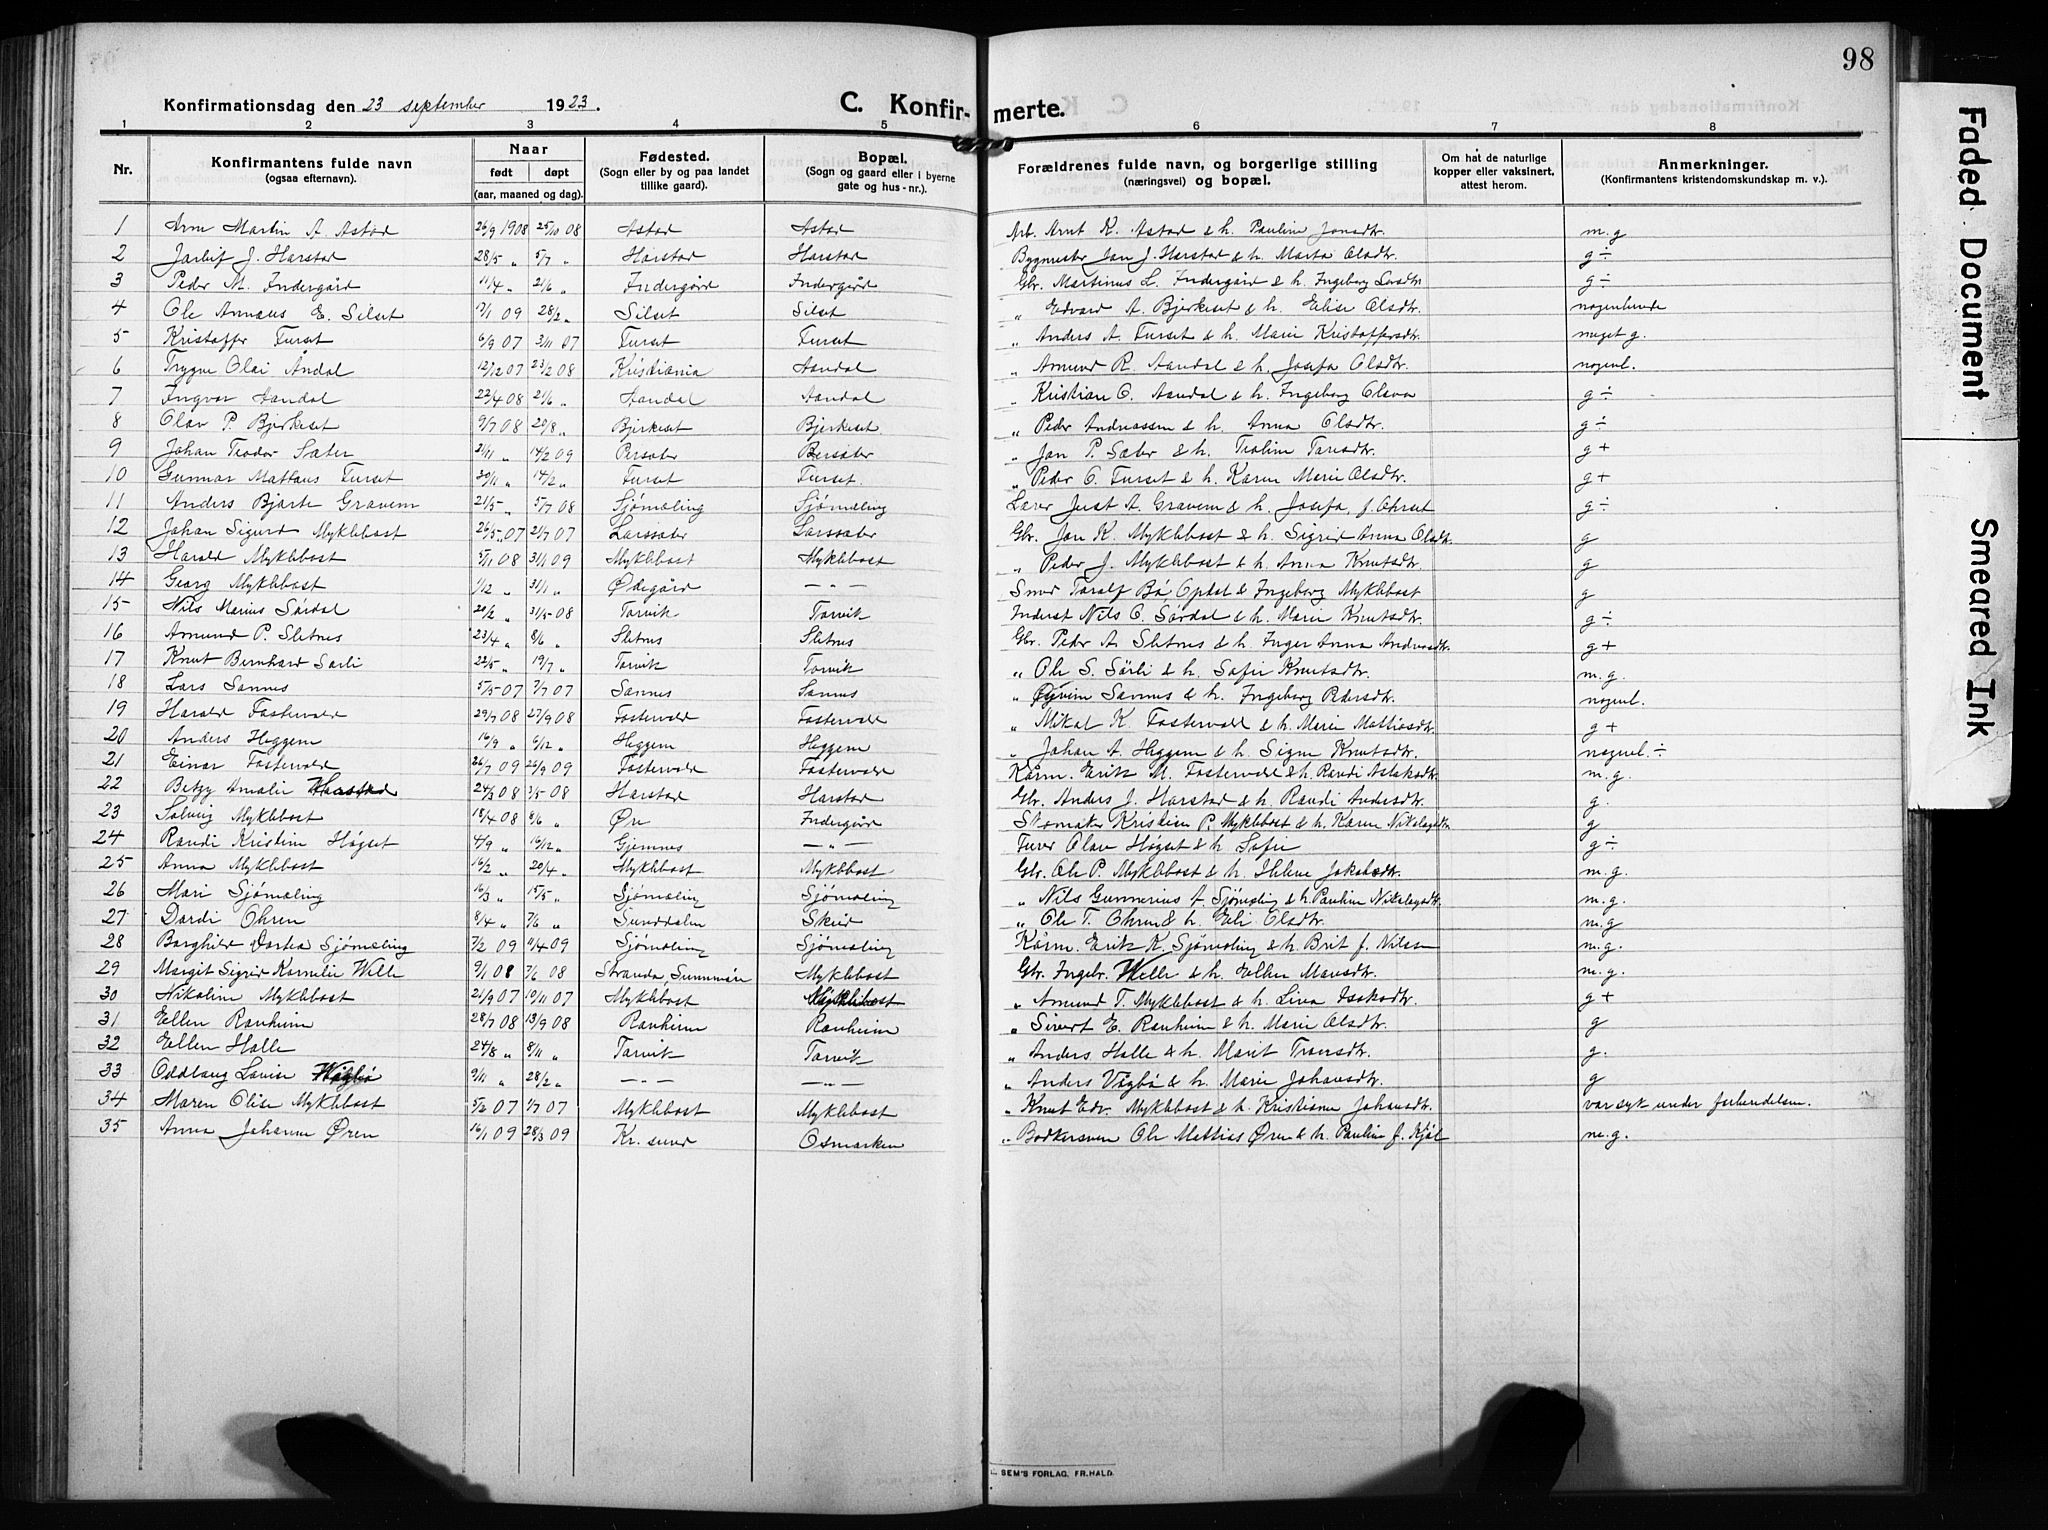 98
Konfirmationsdag den 23 september 1923.
C. Konfirmerte.
1 2 3 4 5 6 7 8
Nr. | Konfirmantens fulde navn (ogsaa efternavn). | Naar født døpt (aar, maaned og dag). | Fødested. (Sogn eller by og paa landet tillike gaard). | Bopæl. (Sogn og gaard eller i byerne gate og hus-nr.). | Forældrenes fulde navn, og borgerlige stilling (næringsvei) og bopæl. | Om hat de naturlige kopper eller vaksinert, attest herom. | Anmerkninger. (Konfirmantens kristendomskundskap m. v.).
1 Arne Martin A. Astad 26/9 1908 25/10 08 Astad Astad Arb. Arnt K. Astad & h. Pauline Jonsdtr. m.g
2 Jarleif J. Harstad 28/5 „ 5/7 „ Harstad Harstad Bygmester Jon J. Harstad & h. Marta Olsdtr. g÷
3 Peder M. Indergård 11/4 „ 21/6 „ Indergård Indergård Gbr. Martinus L. Indergård & h. Ingeborg Larsdtr. g÷
4 Ole Annæus E. Silset 17/1 09 28/2 „ Silset Silset „ Edvard A. Bjerkeset & h. Elise Olsdtr. nogenlunde
5 Kristoffer Furset 6/9 07 3/11 07 Furset Furset „ Anders A. Furset & h. Marie Kristoffersdtr. meget g.
6 Trygve Olai Åndal 12/12 07 23/2 08 Kristiania Aandal „ Amund R. Aandal & h. Josefa Olsdtr. nogenl.
7 Ingvar Aandal 22/4 08 21/6 „ Aandal Aandal „ Kristian O. Aandal & h. Ingeborg Olava g÷
8 Olav P. Bjerkeset 9/7 08 20/8 „ Bjerkeset Bjerkeset „ Peder Andreassen & h. Anna Olsdtr. g÷
9 Johan Teodor Sæter 21/11 „ 14/2 09 Persæter Persæter „ Jon P. Sæter & h. Troline Toresdtr. g+
10 Gunnar Mattæus Furset 30/11 „ 14/2 „ Furset Furset. „ Peder O. Furset & h. Karen Marie Olsdtr. g+
11 Anders Bjarte Gravem 21/5 „ 5/7 08 Sjømæling Sjømæling Lærer Just A. Gravem & h. Josefa, f. Ohrset g÷
12 Johan Sigurd Myklebost 26/5 07 21/7 07 Larssæter Larssæter Gbr. Jon K. Myklebost & h. Sigrid Anna Olsdt. g
13 Harald Myklebost 5/11 08 31/1 09 Myklebost Myklebost „ Peder J. Myklebost & h. Anna Knutsdtr. g
14 Georg Myklebost 1/12 „ 31/1 „ Ødegård — „ — Smed Toralf Bø Opdal & Ingeborg Myklebost g
15 Nils Marius Sørdal 20/2 „ 31/5 08 Torvik Torvik Inderst Nils O. Sørdal & h. Marie Knutsdtr. g÷
16 Amund P. Sletnes 23/4 „ 8/6 „ Sletnes Sletnes Gbr. Peder A. Sletnes & h. Inger Anna Andreasdtr. g+
17 Knut Bernhard Sørli 22/5 „ 19/7 „ Torvik Torvik „ Ole S. Sørli & h. Sofie Knutsdtr. m.g.
18 Lars Sannes 5/5 07 7/7 07 Sannes Sannes „ Øyvin Sannes & h. Ingeborg Pedersdtr. nogenl.
19 Harald Fostervold 29/7 08 27/9 08 Fostervold Fostervold „ Mikal K. Fostervold & h. Marie Mattiasdtr. g+
20 Anders Heggem 16/9 „ 6/12 „ Heggem Heggem „ Johan A. Heggem & h. Signe Knutsdtr. nogenl.÷
21 Einar Fostervold 26/7 09 26/9 09 Fostervold Fostervold Kårm. Erik M. Fostervold & h. Randi Aslaksdtr. m.g.
22 Betzy Amalie Harstad 24/3 08 3/5 08 Harstad Harstad Gbr. Anders J. Harstad & h. Randi Andersdtr. g.
23 Solveig Myklebost 18/4 08 8/6 „ Øre Indergård Skomaker Kristian P. Myklebost & h. Karen Nikolaysdtr. g
24 Randi Kristine Høgset 4/9 „ 16/12 „ Gjemnes — „ — Furer Olav Høgset & h. Sofie g÷
25 Anna Myklebost 16/2 „ 20/4 „ Myklebost Myklebost Gbr. Ole P. Myklebost & h. Helene Jakobsdtr. m.g.
26 Mari Sjømæling 16/3 „ 15/5 „ Sjømæling Sjømæling „ Nils Gunnerius A. Sjømæling & h. Pauline Nikolaysdtr. m.g.
27 Dordi Ohren 8/4 „ 7/6 „ Sunddalen Skeid „ Ole T. Ohren & h. Eli Olsdtr. m.g
28 Borghild Dortea Sjømæling 7/2 09 11/4 09 Sjømæling Sjømæling Kårm. Erik K. Sjømæling & h. Brit f. Nilsen m.g.
29 Margit Sigrid Kornelie Welle 9/1 08 7/6 08 Stranda Sunnmøre Myklebost Gbr. Ingebr. Welle & h. Ellen Monsdtr. m.g.
30 Nikoline Myklebost 21/9 07 10/11 07 Myklebost Myklebost „ Amund T. Myklebost & h. Lina Isaksdtr. g+
31 Ellen Ranheim 28/7 08 13/9 08 Ranheim Ranheim „ Sivert E. Ranheim & h. Marie Olsdtr. g
32 Ellen Halle 24/8 „ 8/11 „ Torvik Torvik „ Anders Halle & h. Marit Tronsdtr. g.
33 Oddlaug Lovise Vågbø 9/11 „ 28/2 „ — „ — — „ — „ Anders Vågbø & h. Marie Johansdtr. g
34 Maren Olise Myklebost 5/2 07 1/7 07 Myklebost Myklebost „ Knut Edv. Myklebost & h. Kristianna Johansdtr. var syk under forberedelsen.
35 Anna Johanne Øren 16/1 09 28/3 09 Kr. sund Osmarken „ Bødkersven Ole Mattias Øren & h. Pauline f. Kjøl m.g.
SEM'S FORLAG, FR.HALD.
Faded Document
Smeared Ink